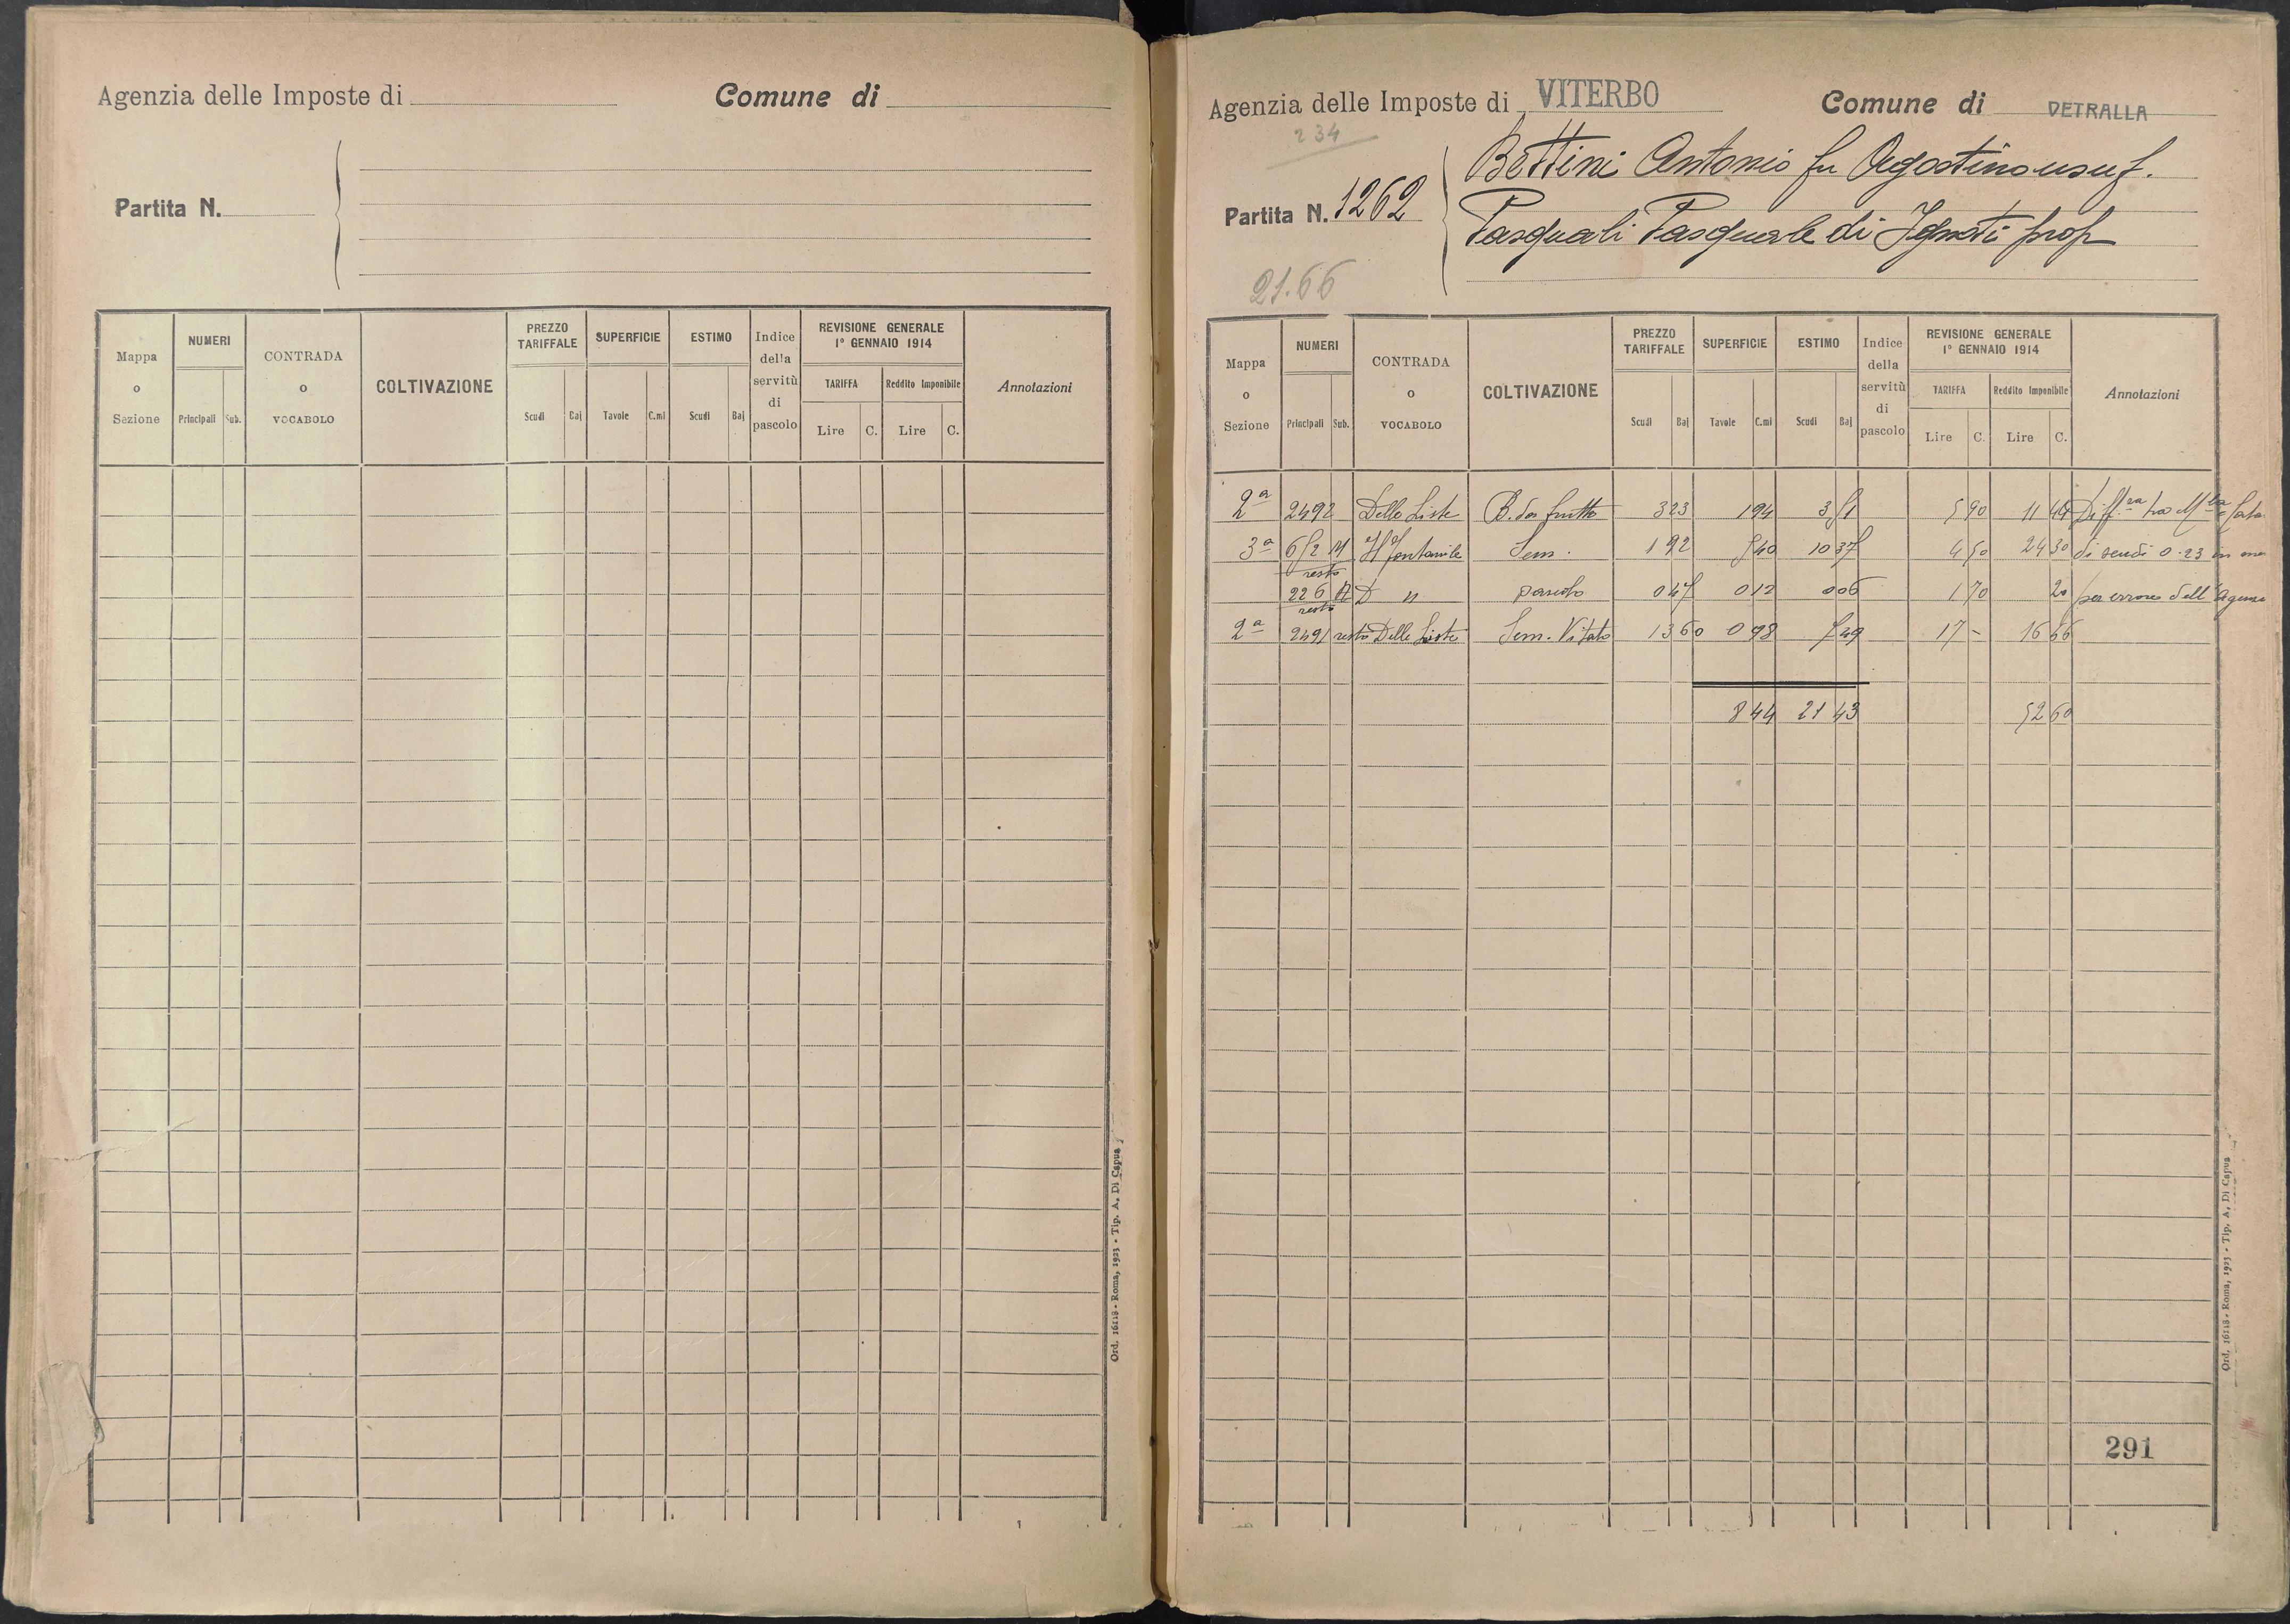 Agenzia delle Imposte di
Comune di
Partita N.
Mappa o Sezione
NUMERI
Principali Sub.
CONTRADA o VOCABOLO
COLTIVAZIONE
PREZZO TARIFFALE
Scudi Baj
SUPERFICIE
Tavole C.mi
ESTIMO
Scudi Baj
Indice della servitù di pascolo
REVISIONE GENERALE
1° GENNAIO 1914
TARIFFA Reddito Imponibile
Lire C. Lire C.
Annotazioni
Ord. 16118 - Roma, 1923 - Tip. A. Di Capua
Agenzia delle Imposte di VITERBO
Comune di VETRALLA
234
Partita N. 1262
Bettini Antonio fu Agostino usuf.
Pasquali Pasquale di Ignati prop
21.66
Mappa o Sezione
NUMERI
Principali Sub.
CONTRADA o VOCABOLO
COLTIVAZIONE
PREZZO TARIFFALE
Scudi Baj
SUPERFICIE
Tavole C.mi
ESTIMO
Scudi Baj
Indice della servitù di pascolo
REVISIONE GENERALE
1° GENNAIO 1914
TARIFFA Reddito Imponibile
Lire C. Lire C.
Annotazioni
2ª 2492 Delle Liste B. da frutto 3 23 1 94 3 51 5 90 11 44 Diff.za tra
3ª Sem. 1 92 5 40 10 37 4 50 24 30 di scudi 0.23 in
resto
226 pascolo 0 47 0 12 0 06 1 70 20 per errore dell'Agenzia
resto
2ª 2491 resto Delle Liste Sem. Vitato 13 60 0 98 7 49 17 - 16 66
8 44 21 43 52 60
291
Ord. 16118 - Roma, 1923 - Tip. A. Di Capua